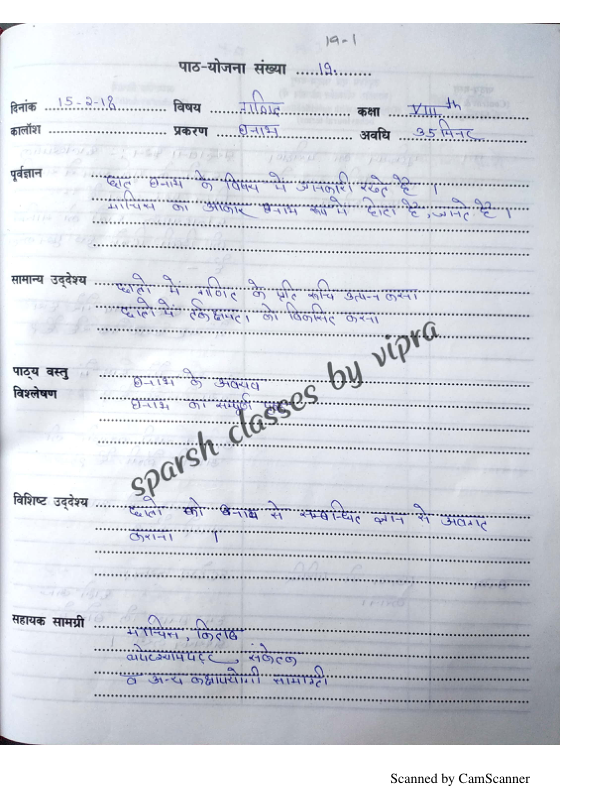 19-1
पाठ-योजना संख्या 19
दिनांक 15-2-18 विषय गणित कक्षा VIIIth
कालॉंश प्रकरण घनाभ अवधि 35 मिनट
पूर्वज्ञान छात्र घनाभ के विषय में जानकारी रखते है ।
माचिस का आकार घनाभ रूप मे होता है, जानते है ।
सामान्य उद्देश्य छात्रो मे गणित के प्रति रूचि उत्पन्न करना
छात्रो में तर्कक्षमता को विकसित करना
पाठ्य वस्तु घनाभ के अवयव
विश्लेषण घनाभ का सम्पूर्ण
sparsh classes by vipra
विशिष्ट उद्देश्य छात्रो को घनाभ से सम्बन्धित ज्ञान से अवगत
कराना ।
सहायक सामग्री माचिस, किताब
लपेटश्यामपट्ट, संकेतक
व अन्य कक्षोपयोगी सामाग्री
Scanned by CamScanner